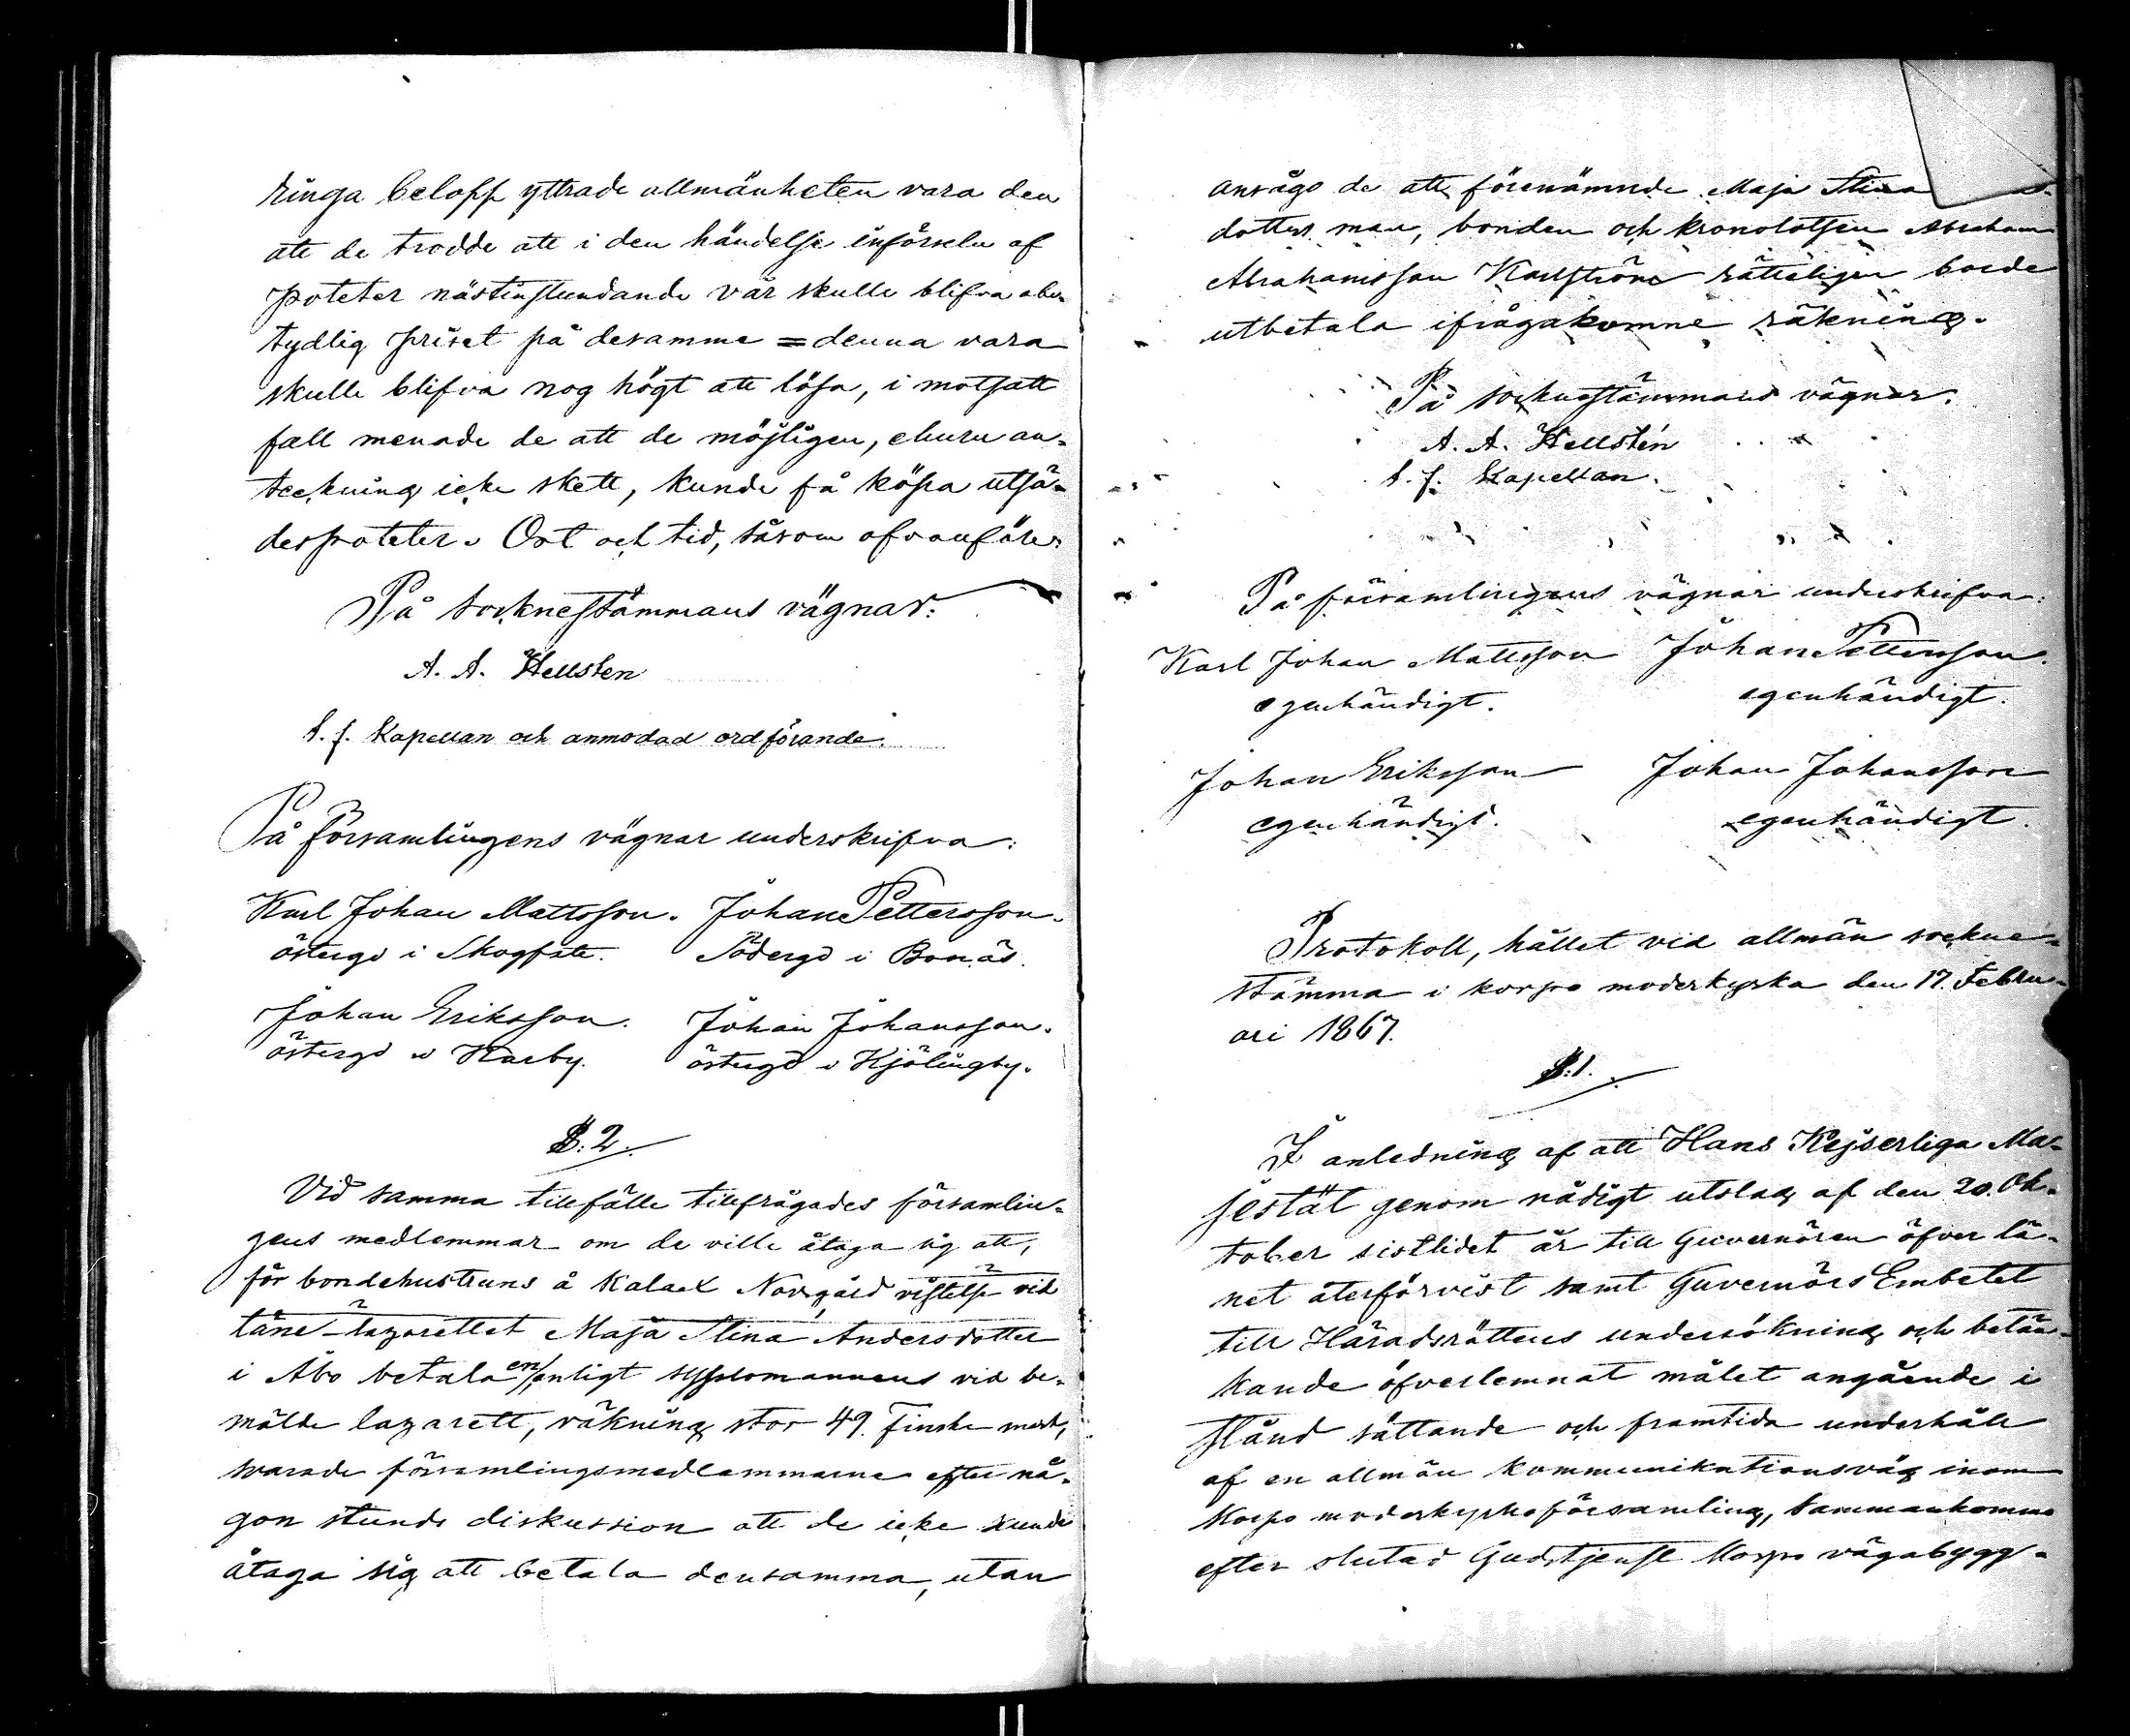 ringa belopp yttrade allmänheten vara den
att de trodde att i den händelse införseln af
poteter nästinstundande vår skulle blifva obe-
tydlig priset på desamma = denna vara
skulle blifva nog högt att lösa, i motsatt
fall menade de att de möjligen, ehuru an-
teckning icke skett, kunde få köpa utsä-
despoteter. Ort och tid, såsom ofvanföre.
På socknestämmans vägnar:
A. A. Hellsten
t. f. Kapellan och anmodad ordförande.
På församlingens vägnar underskrifva:
Karl Johan Mattsson. Johan Pettersson.
östergd i Skogfste. Södergd i Bonäs.
Johan Eriksson. Johan Johansson.
östergd i Karby. östergd i Kjölingby.
§. 2.
Vid samma tillfälle tillfrågades församlin-
gens medlemmar om de ville åtaga sig att,
för bondehustruns å Kalax Norrgård vistelse vid
läne-lazarettet Maja Stina Andersdotter
i Åbo betala en, enligt sysslomannens vid be-
mälte lazarett, räkning stor 49. Finska mark,
svarade församlingsmedlemmarne efter nå-
gon stunds diskussion att de icke kunde
åtaga sig att betala densamma, utan
ansågo de att förenämnde Maja Stina
dotters man, bonden och kronolotsen Abraham
Abrahamsson Karlström rätteligen borde
utbetala ifrågakomne räkning.
På socknestämmans vägnar.
A. A. Hellstén
t. f. Kapellan.
På församlingens vägnar underskrifva:
Karl Johan Mattsson Johan Pettersson.
egenhändigt. egenhändigt.
Johan Eriksson Johan Johansson
egenhändigt. egenhändigt.
Protokoll, hållet vid allmän sockne-
stämma i korpo moderkyrka den 17. Febru-
ari 1867.
§. 1.
I anledning af att Hans Kejserliga Ma-
jestät genom nådigt utslag af den 20. Ok-
tober sistlidet år till Guvernören öfver lä-
net återförvist samt Guvernörs Embetet
till Häradsrättens undersökning och betän-
kande öfverlemnat målet angående i
stånd sättande och framtida underhåll
af en allmän kommunikationsväg inom
Korpo moderkyrkoförsamling, sammankommo
efter slutad Gudstjenst Korpo vägabygg-